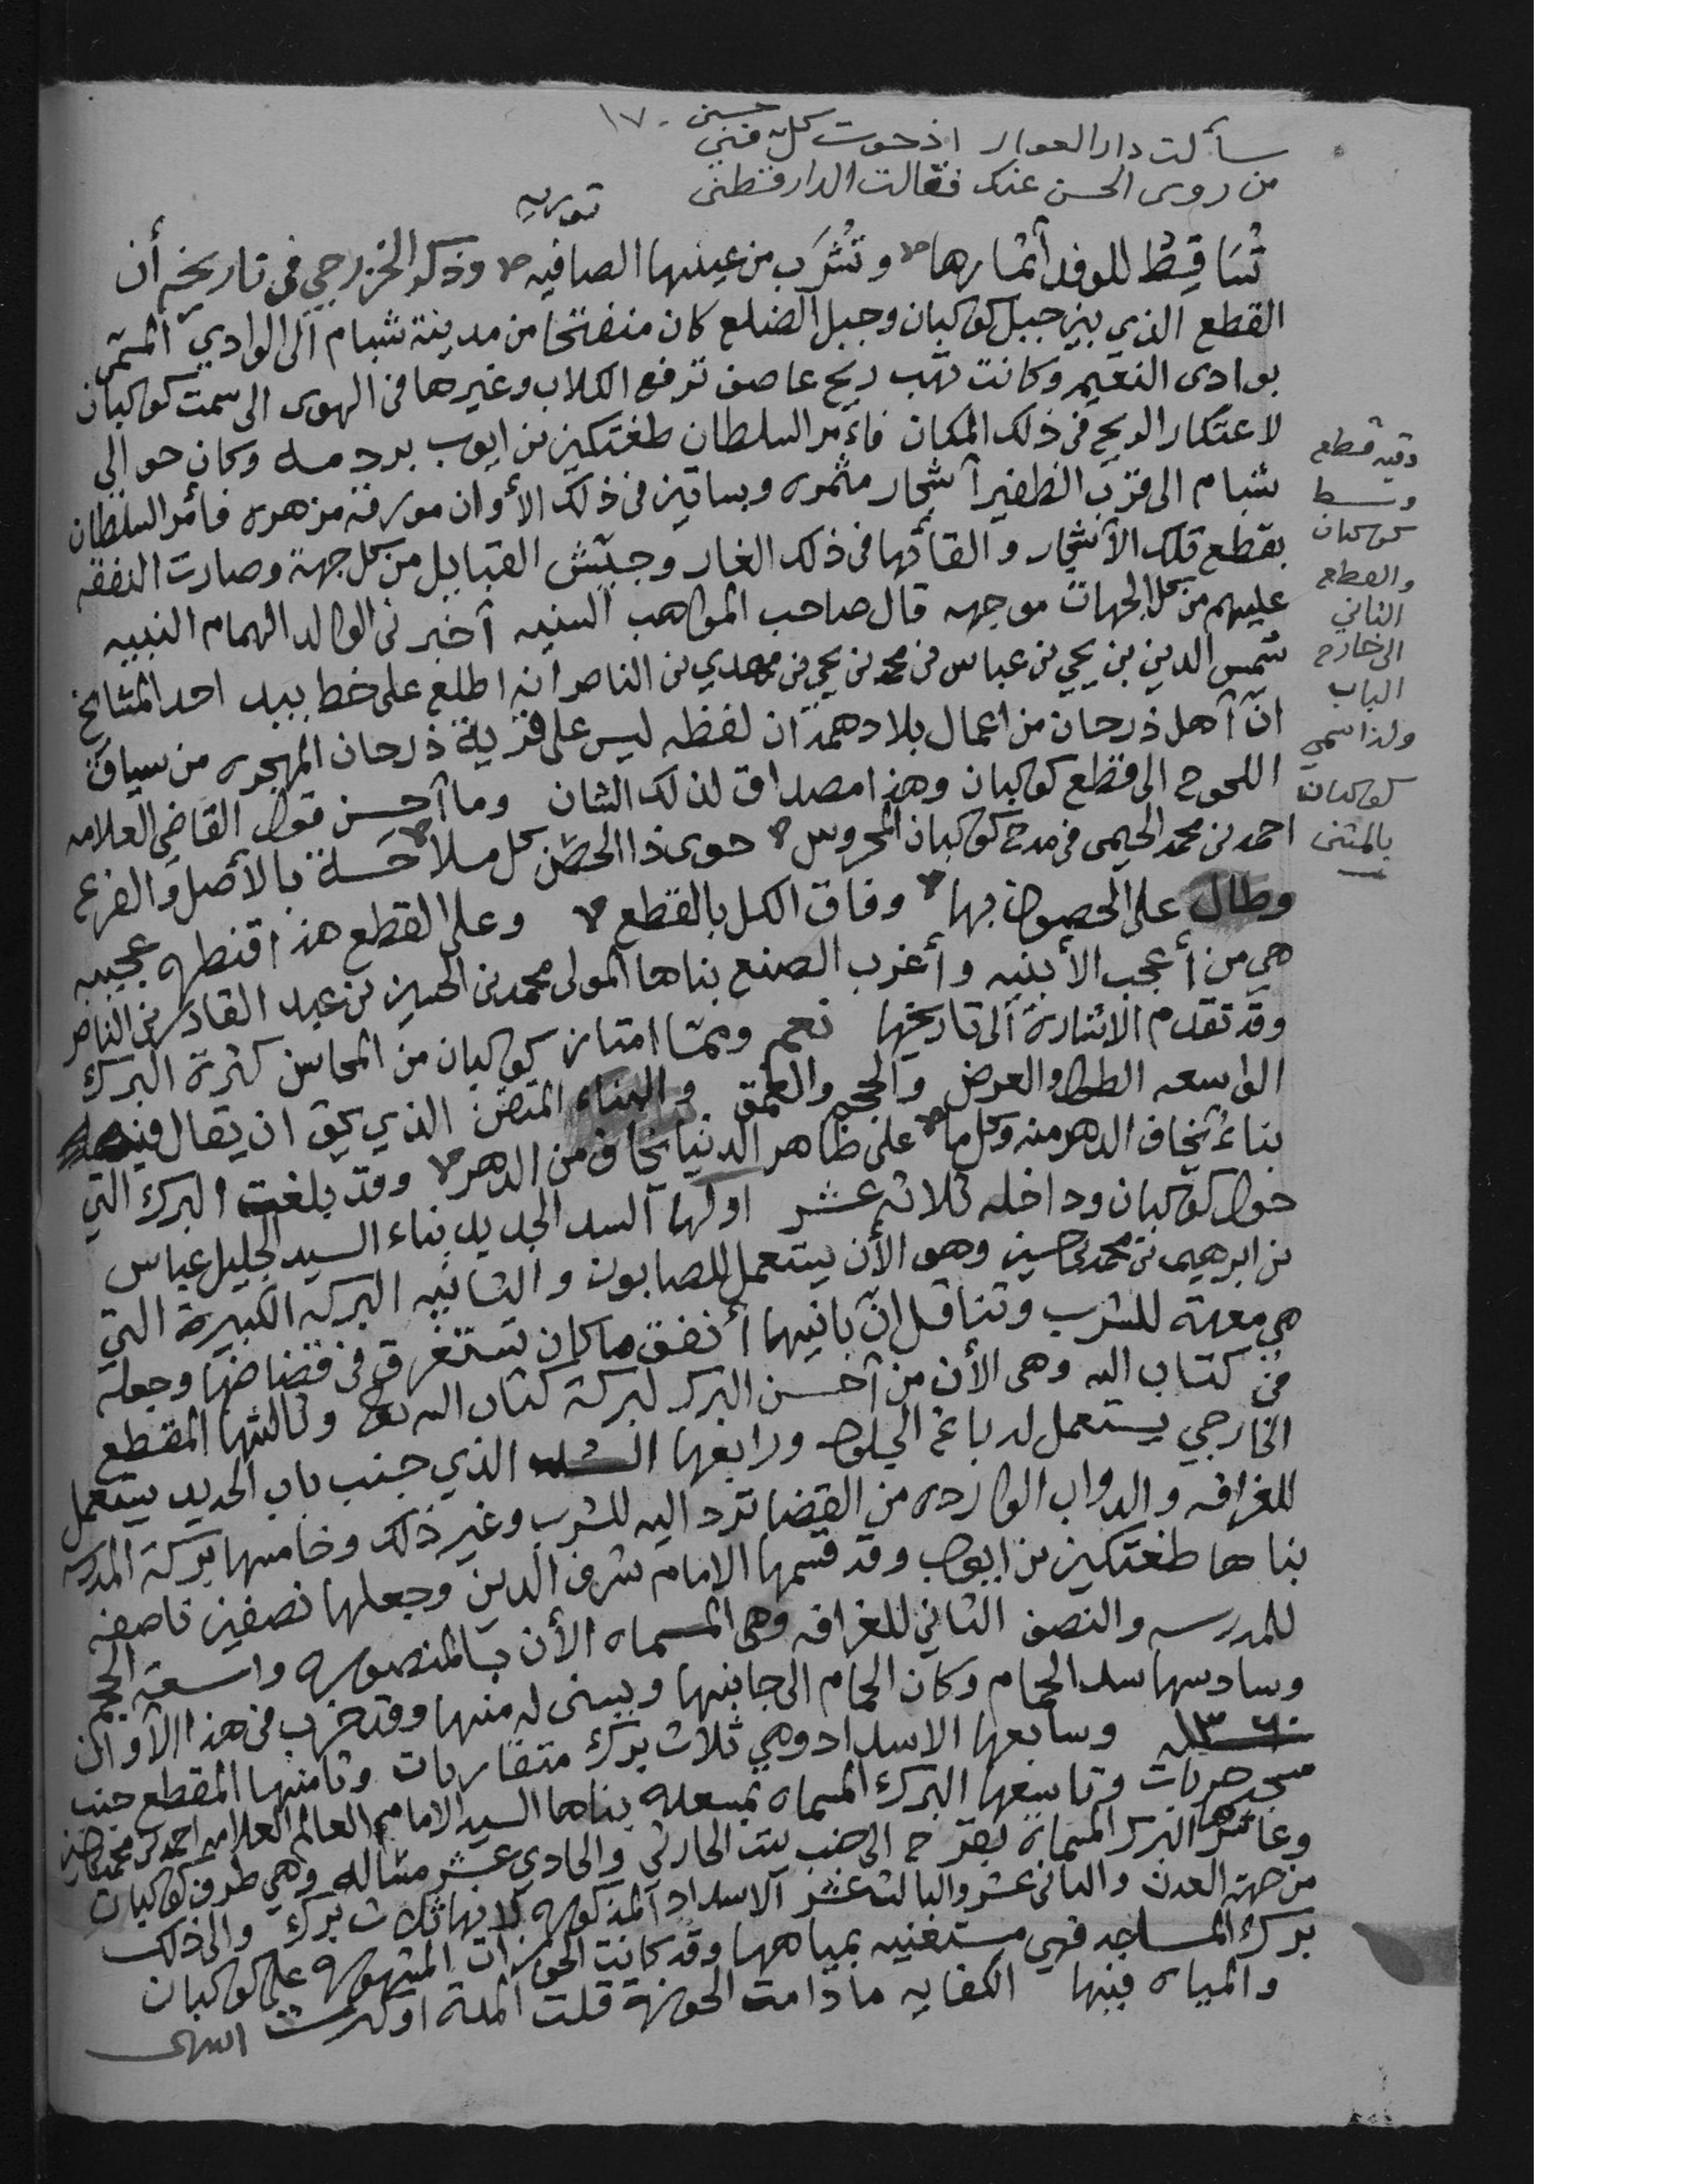 سألت دار العوالي اذ حوت كل حسن فني ١٧٠
من روى الحسن عنك فقالت الدارقطني
توريه
تُسَاقِط للوفد أثمارها وتُشْرَب من عينها الصافيه وذكر الخزرجي في تاريخه أن
القطع الذي بين جبل كوكبان وجبل الضلع كان منفتحا من مدينة شبام الى الوادي المسمى
بوادى النعيم وكانت تهب ريح عاصف ترفع الكلاب وغيرها في الهوى الى سمت كوكبان
لاعتكار الريح في ذلك المكان فاءمر السلطان طغتكين بن ايوب بردمه وكان حوالي
شبام الى قرب الظفير آشجار مثمره وبساتين في ذلك الأوان مورقه مزهره فأمر السلطان
بقطع تلك الآشجار والقائها في ذلك الغار وجيّش القبايل من كل جهة وصارت النفقه
عليهم من كل الجهات موجهه قال صاحب المواهب السنيه آخبرني الوالد الهمام النبيه
شمس الدين بن يحيي بن عباس بن محمد بن يحيي بن مهدي بن الناصر انه اطلع على خط بيد احد المشايخ
انّ آهل ذرحان من اعمال بلاد همدان لفظه ليس على قرية ذرحان المهجره من سياق
اللحوح الى قطع كوكبان وهذا مصداق لذلك الشان وما آحسن قول القاضي العلامه
احمد بن محمد الحيمى في مدح كوكبان المحروس حوى ذا الحصن كل ملاحسة بالأصل والفرع
وطال على الحصون بها وفاق الكل بالقطع وعلى القطع هذا قنطره عجيبه
هي من أعجب الأبنيه وأغرب الصنع بناها المولى محمد بن الحسين بن عبد القادر بن الناصر
وقد تقدم الاشارة الى تاريخها نعم ومما امتاز كوكبان من المحاسن كثرة البرك
الواسعه الطول والعرض والحجم والعمق والبناء المتقن الذي يحق ان يقال فيه
بناءٌ يخاف الدهر منه وكل ما على ظاهر الدنيا يخاف من الدهر وقد بلغت البرك التي
حول كوكبان وداخله ثلاثه عشر اولها السد الجديد بناء السيد الجليل عباس
بن ابرهيم بن محمد بن حسين وهو الأن يستعمل للصابون والثانيه البركه الكبيرة التي
هي معدة للشرب وتناقل انّ بانيها أنفق ما كان تستغرق في قضاضها وجعله
في كتاب الله وهى الأن من آحسن البرك لبركة كتاب الله تع وثالثها المقطع
الخارجي يستعمل لدباغ الجلود ورابعها السد الذي جنب باب الحديد يستعمل
للغرافه والدواب الوارده من القضا ترد اليه للشرب وغير ذلك وخامسها بركة المدرسه
بناها طغتكين بن ايوب وقد قسمها الامام شرف الدين وجعلها نصفين ناصفه
للمدرسه والنصف الثاني للغرافه وهى المسماه الأن بالمنصوره واسعة الحجم
وسادسها سد الحمام وكان الحمام الى جانبها ويسنى له منها وقد خرب في هذا الآوان
١٣٦٠ه وسابعها الاسداد وهي ثلاث برك متقاربات وثامنها المقطع جنب
مسجد حربات وتاسعها البرك المسماه بمسعله بناها السيد الامام العالم العلامه احمد بن محمد بن حسين
وعاشرها البرك المسماة بقرح الى جنب بيت الحارثي والحادي عشر مثاله وهي طرف كوكبان
من جهة العدن والثانى عشر والثالث عشر الآسداد المذكوره لانها ثلاث برك والى ذلك
برك المساجد فهي مستغنيه بمياهها وقد كانت الحوزات المشهوره على كوكبان
والمياه فيها الكفايه مادامت الحوزة قلت المدة او كثرت انتهى
وفيه قطع
وسط
كوكبان
والقطع
الثاني
الى خارج
الباب
ولذا سمي
كوكبان
بالمثنى